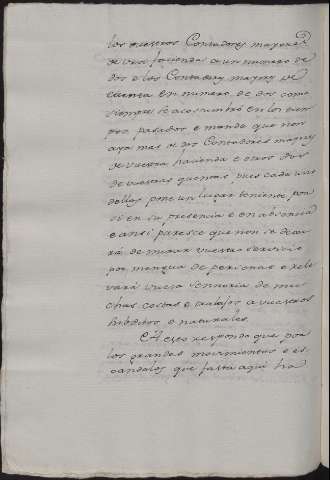 los vuestros Contadores mayores
de vra facienda a un numero de
dos e los Contadores mayores de
cuenta en numero de dos como
siempre se acostumbró en los tiem
pos pasados e mande que non
aya mas de dos Contadores mayores
de vuestra hacienda e otros dos
de vuestras quentas, pues cada uno
dellos pone un lugar teniente por
si en su presencia e en absencia
e ansi paresce que non se dexa
rá de mirar vuestro servicio
por mengua de personas e rele
vará vuesa señoria de mu
chas costas e trabajos a vuestros
subditos e naturales.
A esto respondo que por
los grandes movimientos e es
candalos que fasta aqui ha